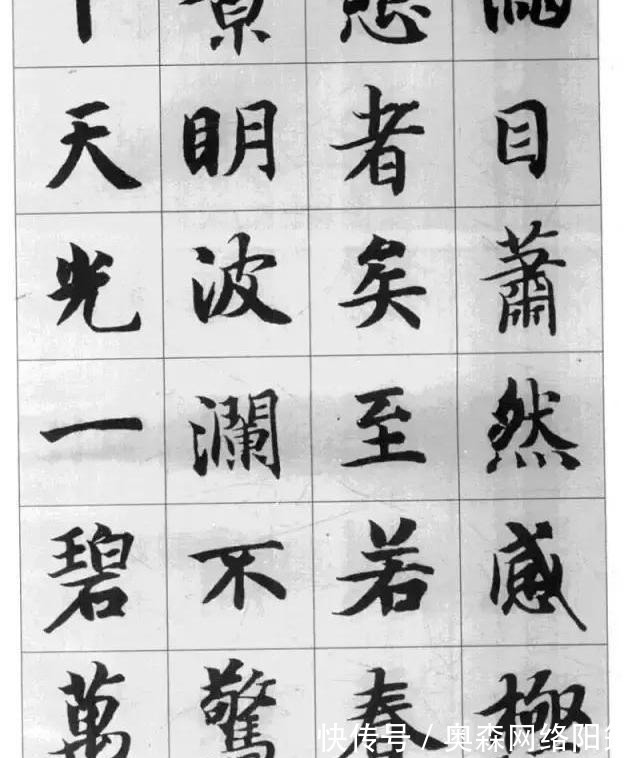 滿目蕭然感極
悲者矣至若春
景明波瀾不驚
下天光一碧萬
快传号 / 奥森网络阳